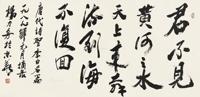 君不見
黃河之水
天上來奔
流到海
不復回
唐代詩聖李白名篇
一九八九年